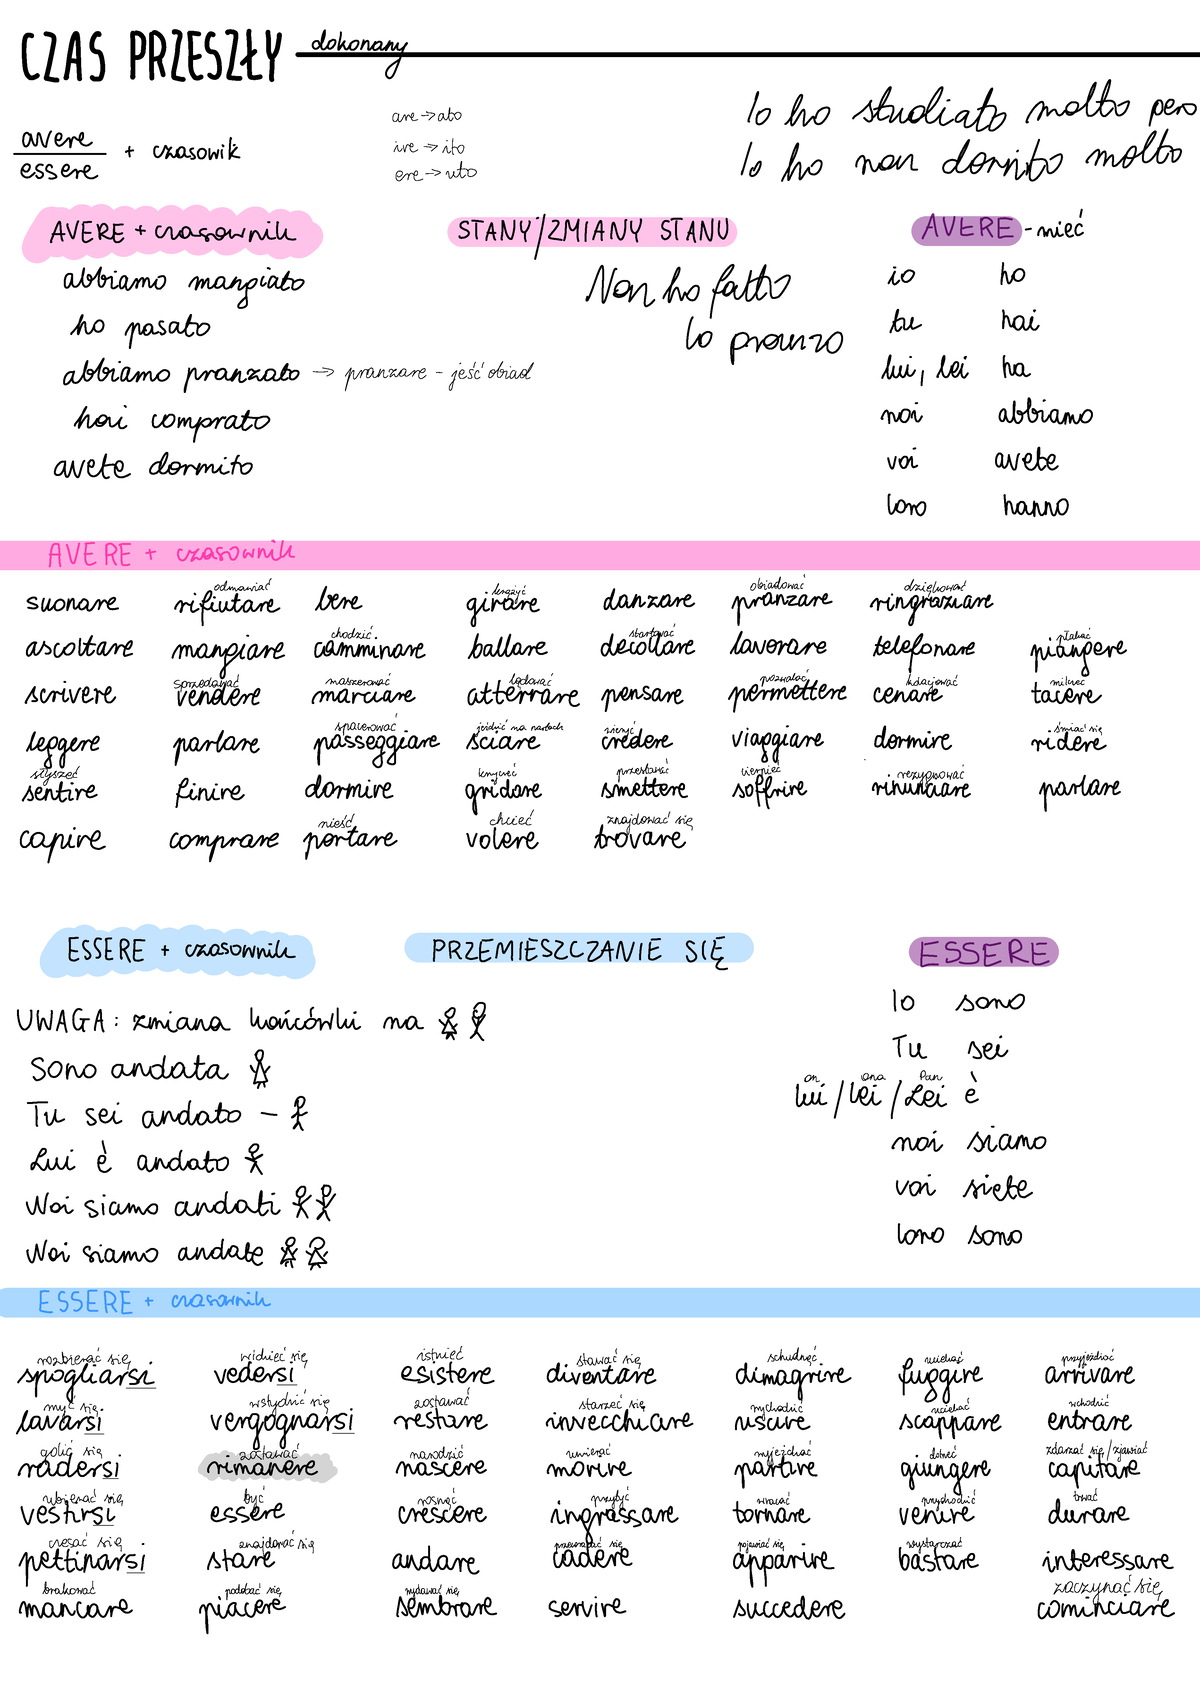 CZAS PRZESZŁY dokonany
avere
essere
+ czasowik
are → ato
ire → ito
ere → uto
Io ho studiato molto pero
Io ho non dormito molto
AVERE + czasownik
abbiamo mangiato
ho pasato
abbiamo pranzato → pranzare - jeść obiad
hai comprato
avete dormito
STANY/ZMIANY STANU
Non ho fatto
lo pranzo
AVERE - mieć
io ho
tu hai
lui, lei ha
noi abbiamo
voi avete
loro hanno
AVERE + czasownik
odmawiać krążyć obiadować dziękować
suonare rifiutare bere girare danzare pranzare ringraziare
chodzić startować płakać
ascoltare mangiare camminare ballare decollare lavorare telefonare piangere
sprzedawać maszerować lądować pozwalać kolacjować milczeć
scrivere vendere marciare atterrare pensare permettere cenare tacere
spacerować jeździć na nartach wierzyć śmiać się
leggere parlare passeggiare sciare credere viaggiare dormire ridere
słyszeć krzyczeć przestawać cierpieć rezygnować
sentire finire dormire gridare smettere soffrire rinunciare parlare
nieść chcieć znajdować się
capire comprare portare volere trovare
ESSERE + czasownik
PRZEMIESZCZANIE SIĘ
UWAGA: zmiana końcówki na
Sono andata
Tu sei andato -
Lui è andato
Noi siamo andati
Noi siamo andate
ESSERE
Io sono
Tu sei
on ona Pan
lui / lei / Lei è
noi siamo
voi siete
loro sono
ESSERE + czasownik
rozbierać się widzieć się istnieć stawać się schudnąć uciekać przyjeżdżać
spogliarsi vedersi esistere diventare dimagrire fuggire arrivare
myć się wstydzić się zostawać starzeć się wychodzić uciekać wchodzić
lavarsi vergognarsi restare invecchiare uscire scappare entrare
golić się zostawać narodzić umierać wyjeżdżać dotrzeć zdarzać się/zjawiać
radersi rimanere nascere morire partire giungere capitare
ubierać się być rosnąć przytyć wracać przychodzić trwać
vestirsi essere crescere ingrassare tornare venire durare
czesać się znajdować się przewracać się pojawiać się wystarczać
pettinarsi stare andare cadere apparire bastare interessare
brakować podobać się wydawać się zaczynać się
mancare piacere sembrare servire succedere cominciare